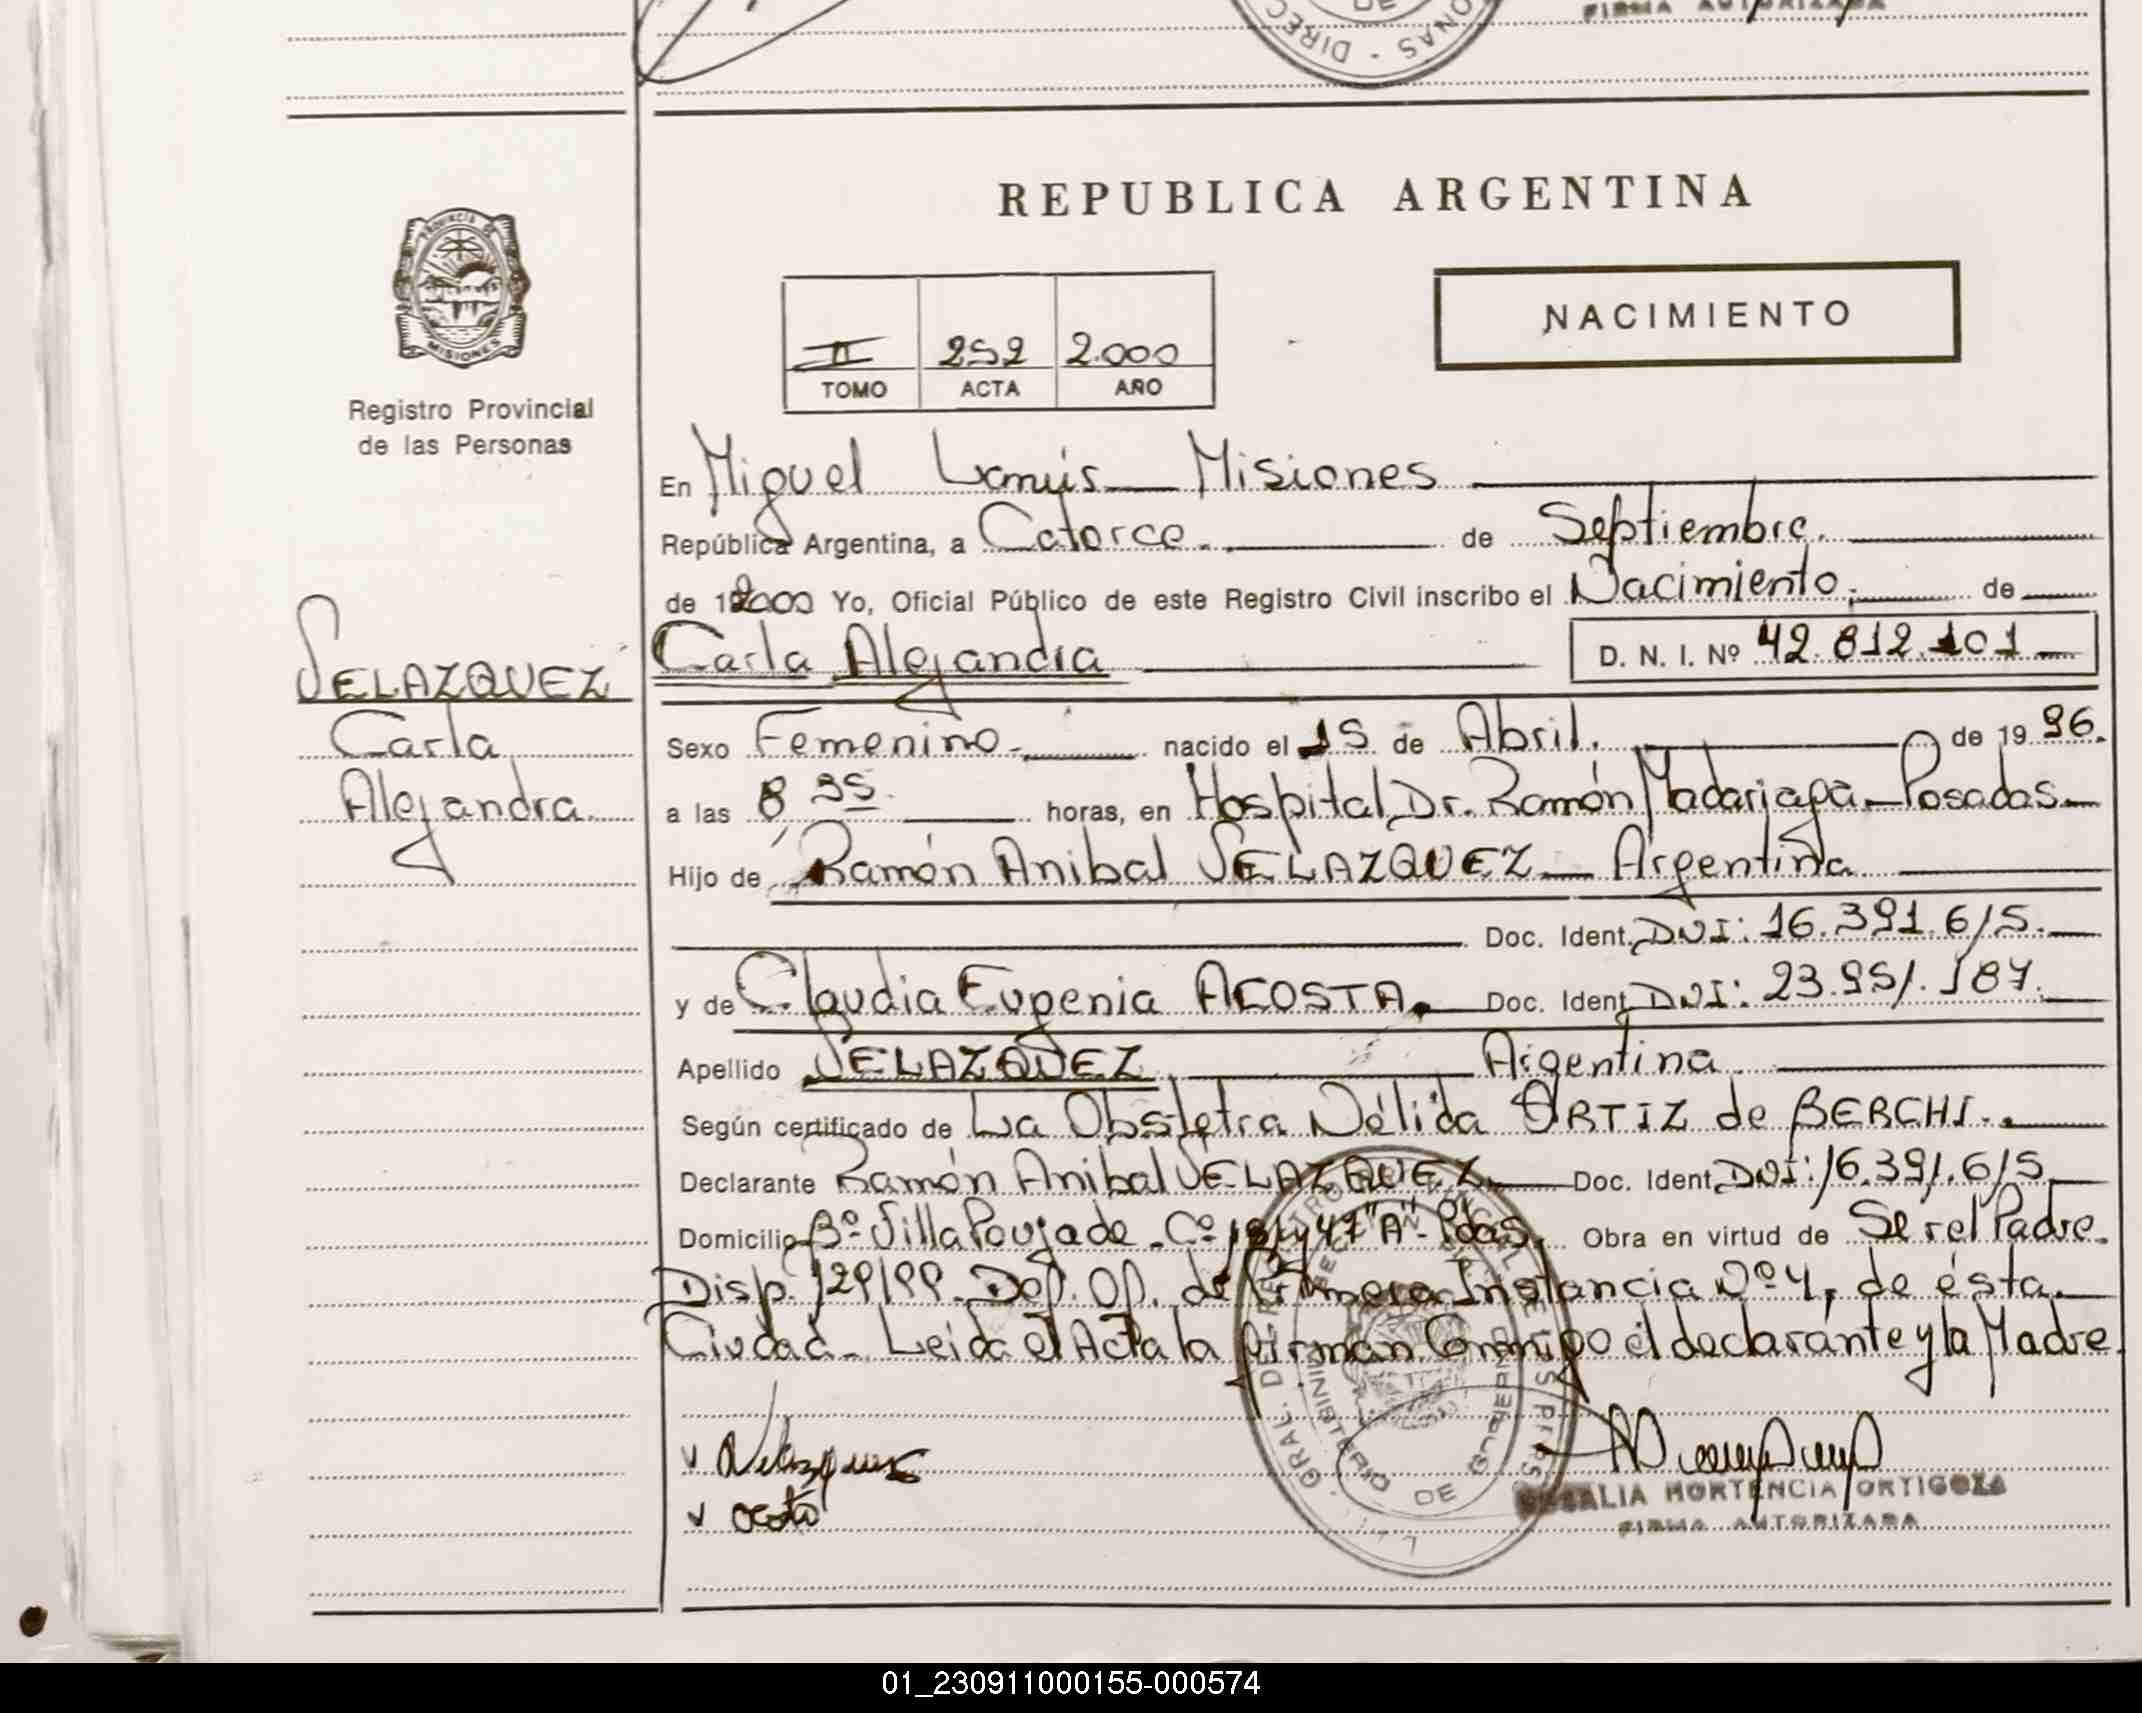 FIRMA AUTORIZADA
DIREC
NAS
DE
REPUBLICA ARGENTINA
PROVINCIA DE
MISIONES
NACIMIENTO
II 252 2.000
TOMO ACTA AÑO
Registro Provincial
de las Personas
En Miguel Lanús Misiones
República Argentina, a Catorce. de Septiembre.
de 2000 Yo, Oficial Público de este Registro Civil inscribo el Nacimiento. de
Carla Alejandra D. N. I. Nº 42.812.101
VELAZQUEZ
Carla
Alejandra
Sexo Femenino. nacido el 15 de Abril. de 19 96.
a las 8 35 horas, en Hospital Dr. Ramón Madariaga - Posadas
Hijo de Ramón Anibal VELAZQUEZ Argentina
Doc. Ident. DNI: 16.391.615.
y de Claudia Eugenia ACOSTA. Doc. Ident. DNI: 23.951.187.
Apellido VELAZQUEZ Argentina
Según certificado de La Obstetra Nélida ORTIZ de BERCHI.
Declarante Ramón Anibal VELAZQUEZ Doc. Ident. DNI: 16.391.615
Domicilio Bº Villa Poujade - Cº 47 "A" - Pdas. Obra en virtud de Ser el Padre.
Disp. 129/99. Def. Of. de Primera Instancia Nº 4, de ésta
Ciudad - Leida el Acta la firman Conmigo el declarante y la Madre.
Velazquez
Acosta
ROSALIA HORTENCIA ORTIGOZA
FIRMA AUTORIZADA
MINISTERIO DE GOBIERNO
01_230911000155-000574